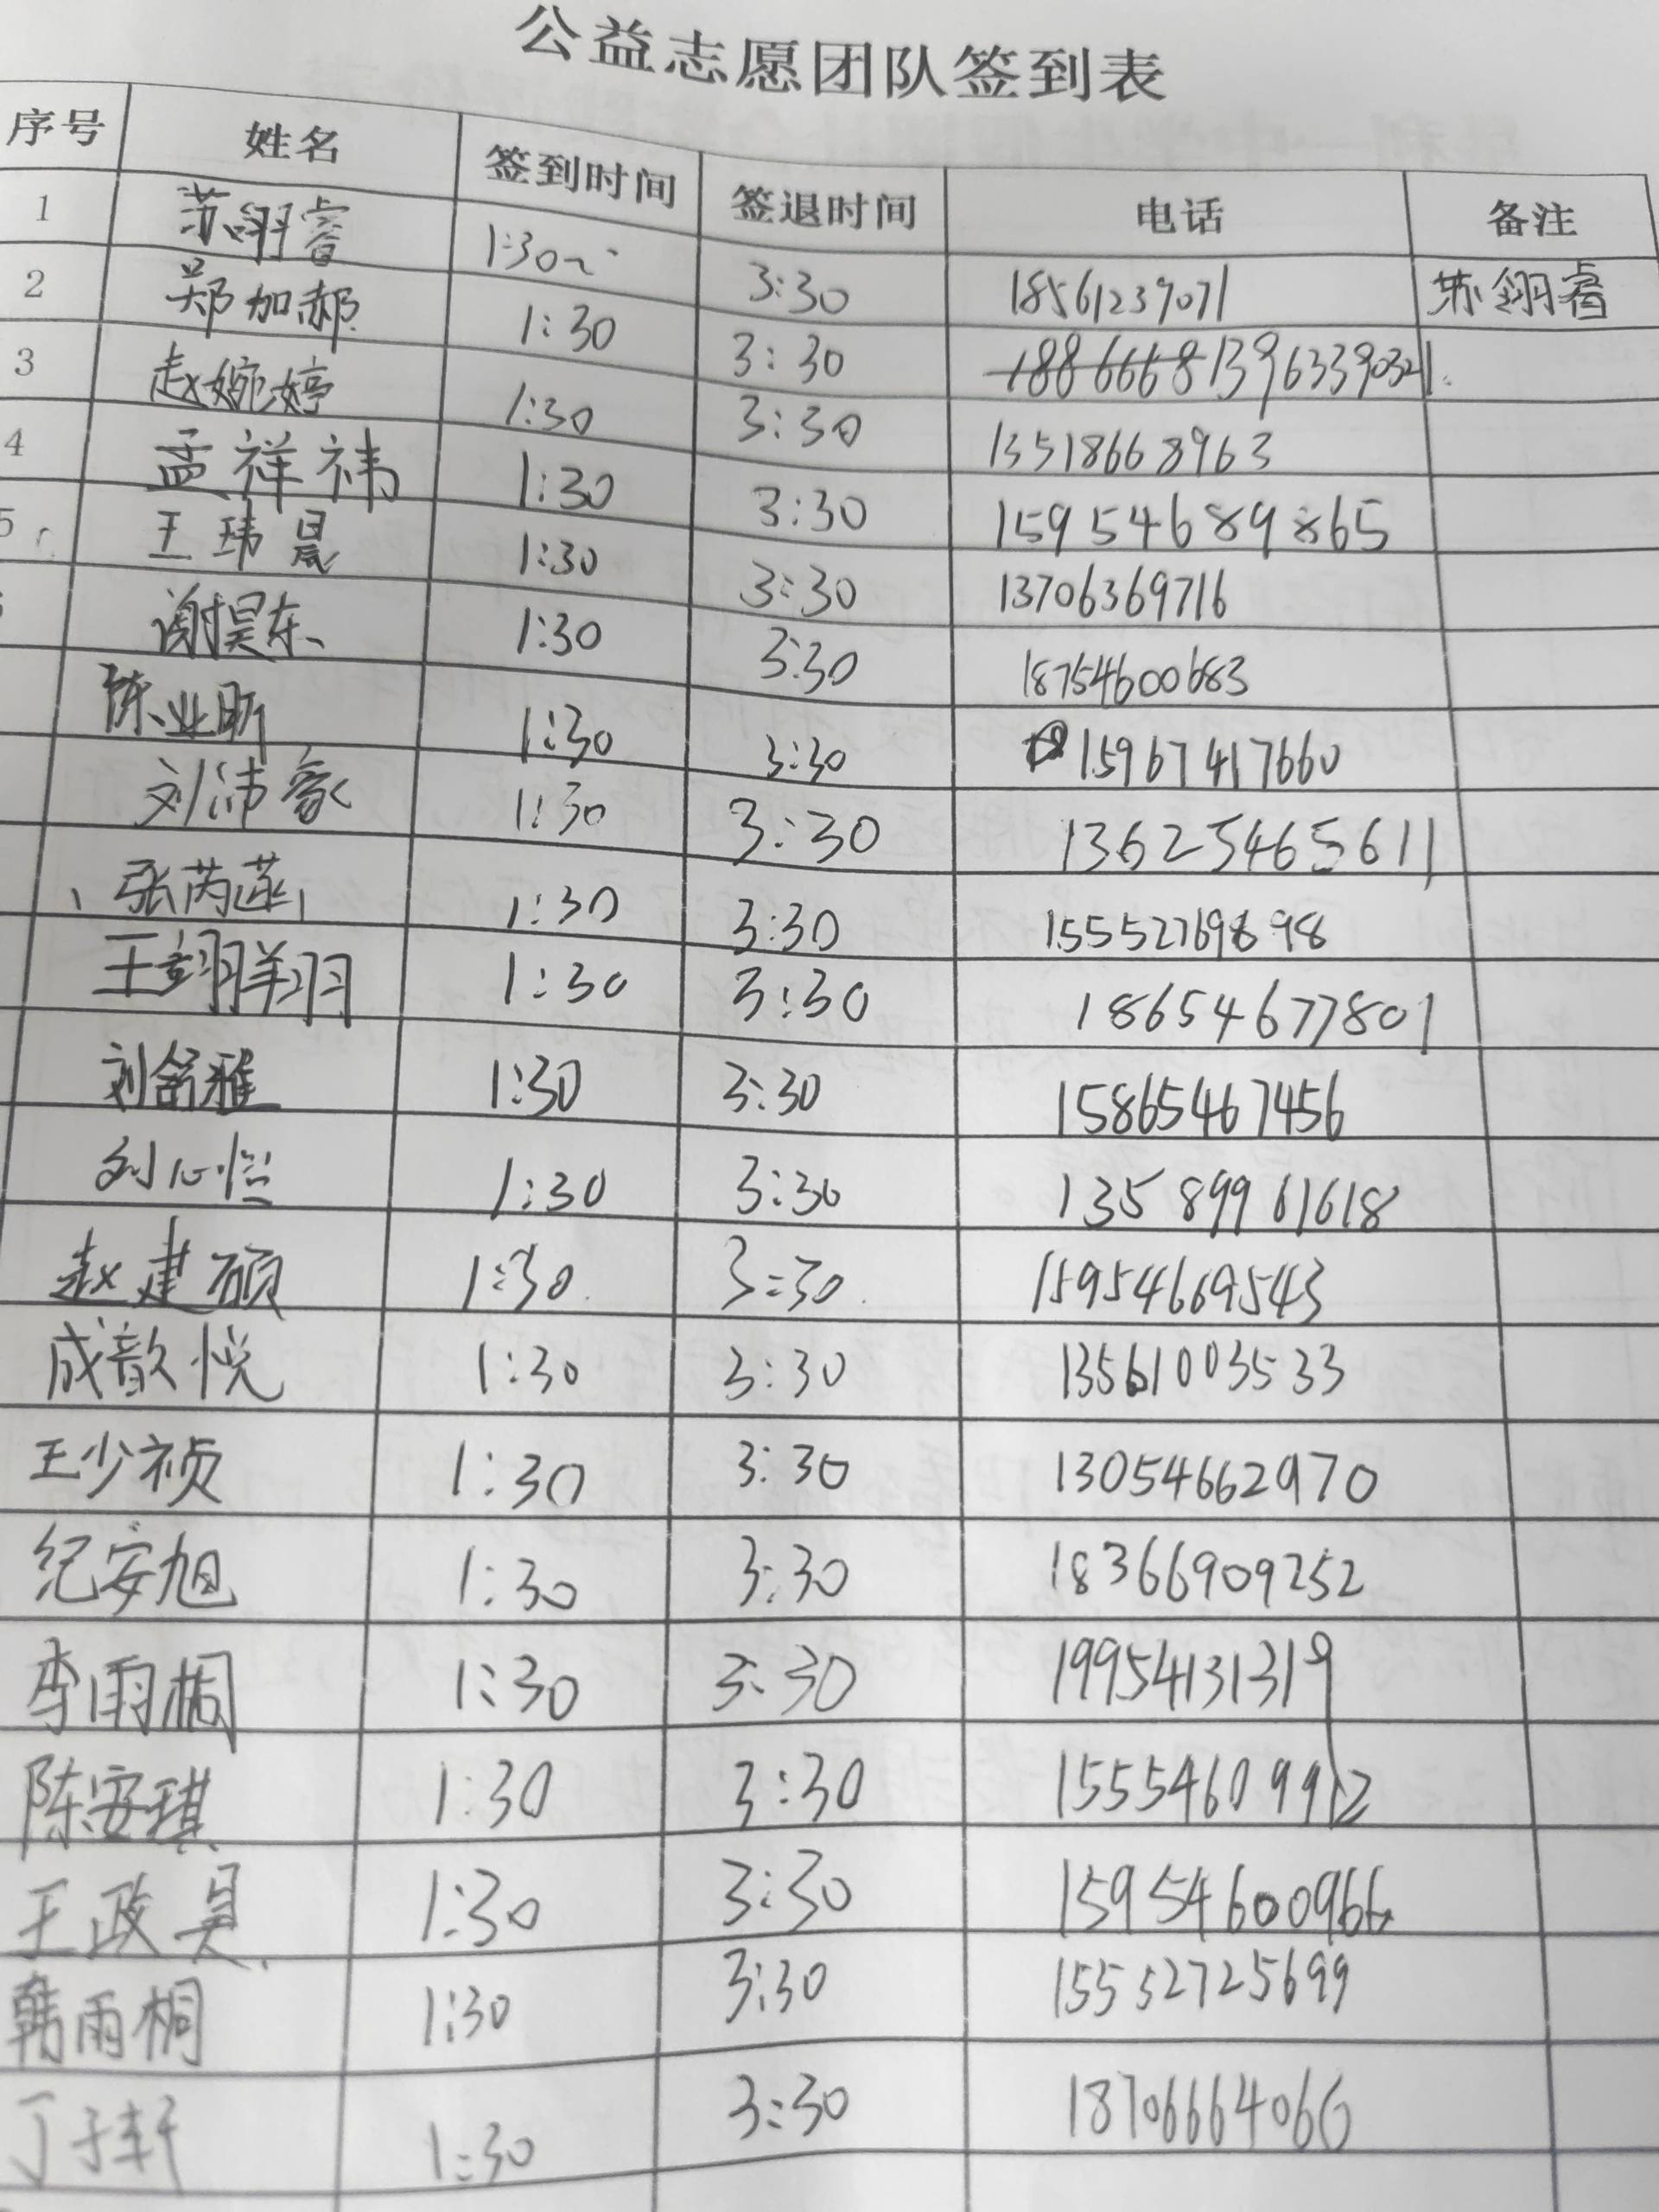 公益志愿团队签到表
序号 姓名 签到时间 签退时间 电话 备注
1 苏翊睿 1:30~ 3:30 18561239071 苏翊睿
2 郑加郝 1:30 3:30 13963390321
3 赵婉婷 1:30 3:30 13518668963
4 孟祥祎 1:30 3:30 15954689865
5 王玮晨 1:30 3:30 13706369716
谢昊东 1:30 3:30 18754600683
陈业昕 1:30 3:30 15967417660
刘沛豪 1:30 3:30 13625465611
张芮菡 1:30 3:30 15552769898
王翊羽 1:30 3:30 18654677801
刘舒雅 1:30 3:30 15865467456
刘心怡 1:30 3:30 13589961618
赵建硕 1:30 3:30 15954669543
成歆悦 1:30 3:30 13561003533
王少祯 1:30 3:30 13054662970
纪安旭 1:30 3:30 18366909252
李雨桐 1:30 3:30 19954131319
陈安琪 1:30 3:30 15554609912
王政昊 1:30 3:30 15954600966
韩雨桐 1:30 3:30 15552725699
丁子轩 1:30 3:30 18706664066